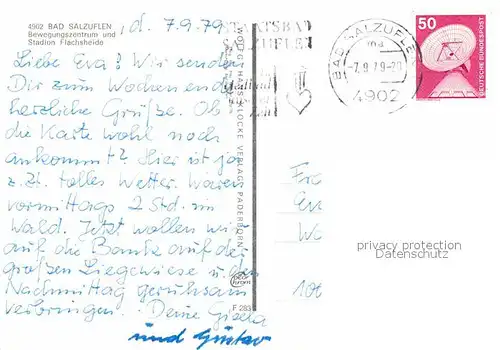 4902 BAD SALZUFLEN
Bewegungszentrum und
Stadion Flachsheide
d. 7.9.79
Liebe Eva! Wir senden
Dir zum Wochenende
herzliche Grüße. Ob
die Karte wohl noch
ankommt? Hier ist ja
z.Zt. tolles Wetter. Waren
vormittags 2 Std. im
Wald. Jetzt wollen wir
auf die Bank auf der
großen Liegewiese u. den
Nachmittag geruhsam
verbringen. Deine Gisela
und Gustav
VERLAG PADERBORN
F 283
STAATSBAD
SALZUFLEN
BAD SALZUFLEN
-7.9.79-20
4902
50
DEUTSCHE BUNDESPOST
privacy protection
Datenschutz